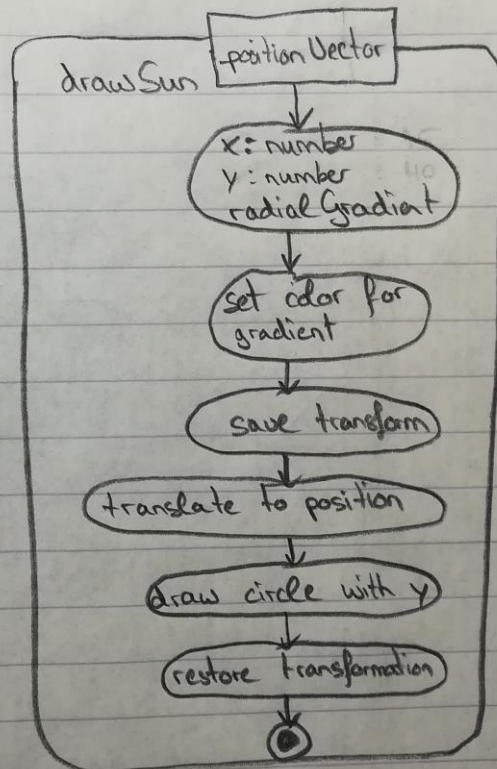 _positionVector
drawSun
x: number
y: number
radialGradient
set color for
gradient
save transform
translate to position
draw circle with y
restore transformation